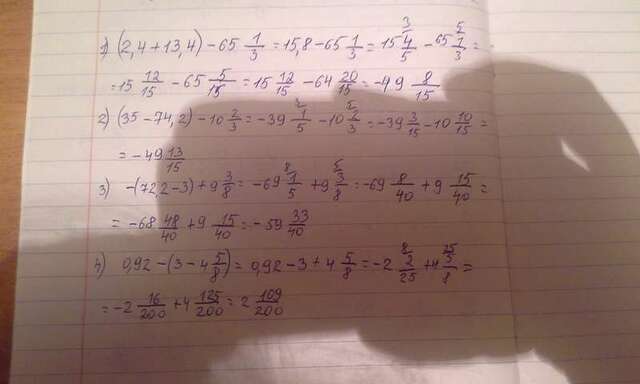 1) (2,4+13,4)-65 1/3 = 15,8-65 1/3 = 15 4/5 ³ - 65 1/3 ⁵ =
= 15 12/15 - 65 5/15 = 15 12/15 - 64 20/15 = -49 8/15
2) (35-74,2)-10 2/3 = -39 1/5 ³ - 10 2/3 ⁵ = -39 3/15 - 10 10/15 =
= -49 13/15
3) -(72,2-3)+9 3/8 = -69 1/5 ⁸ + 9 3/8 ⁵ = -69 8/40 + 9 15/40 =
= -68 48/40 + 9 15/40 = -59 33/40
4) 0,92-(3-4 5/8) = 0,92-3+4 5/8 = -2 2/25 ⁸ + 4 5/8 ²⁵ =
= -2 16/200 + 4 125/200 = 2 109/200